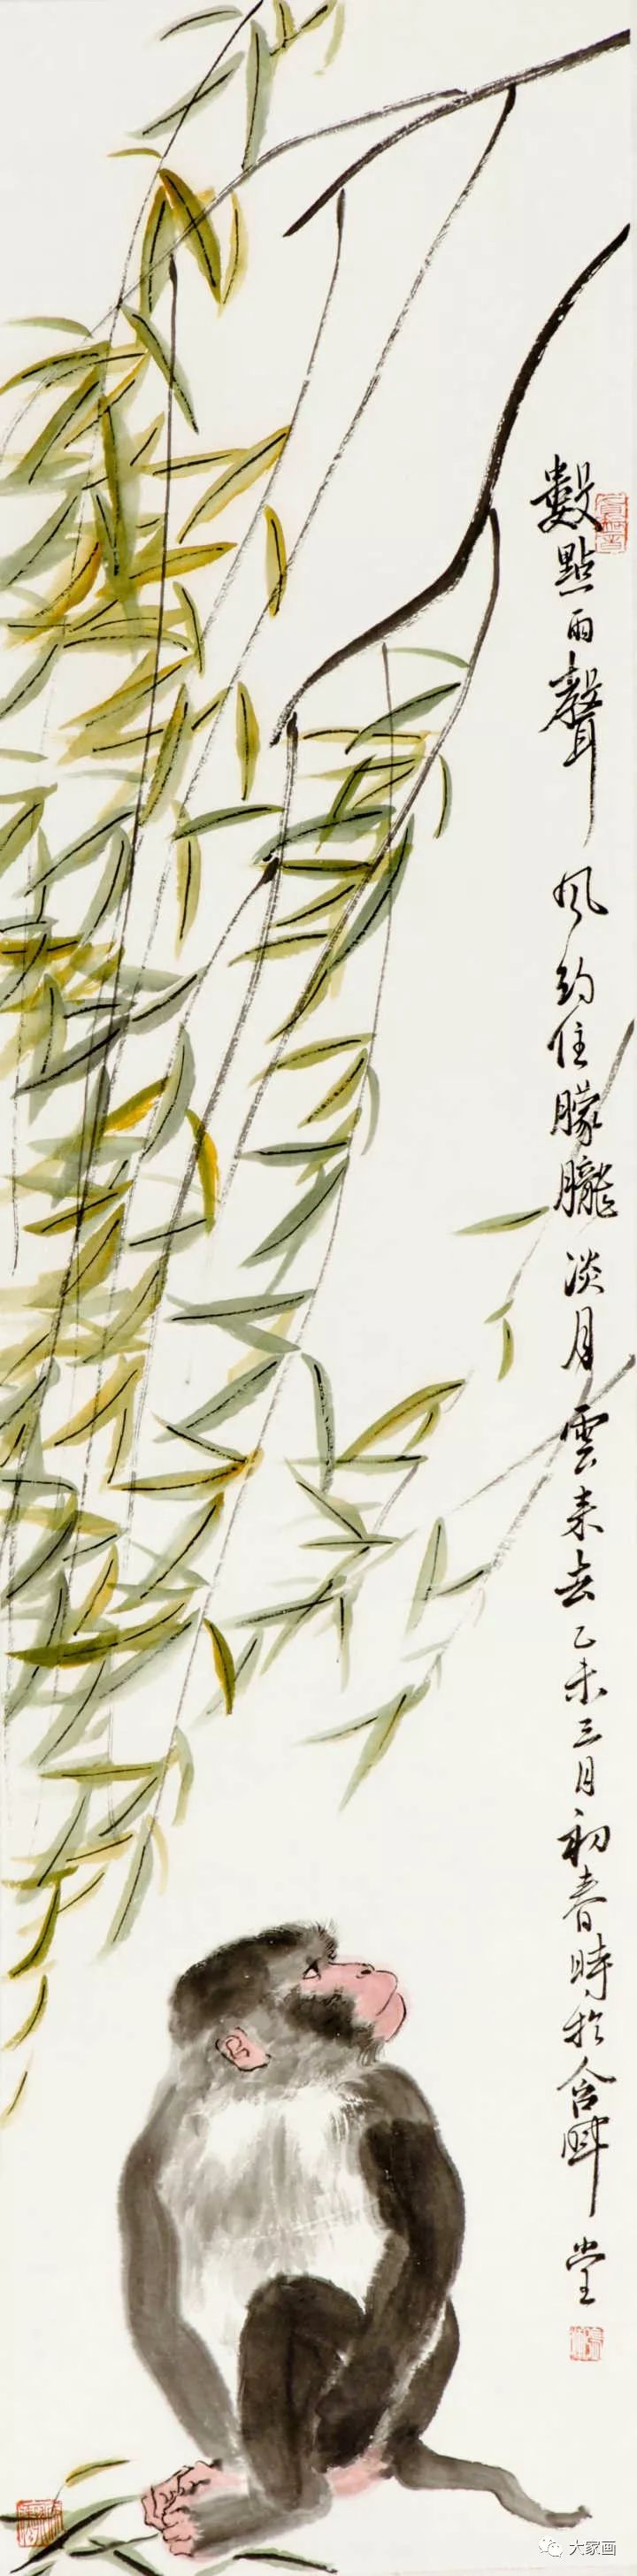 數點雨聲風約住朦朧淡月雲来去乙未三月初春時於含暉堂
大家画